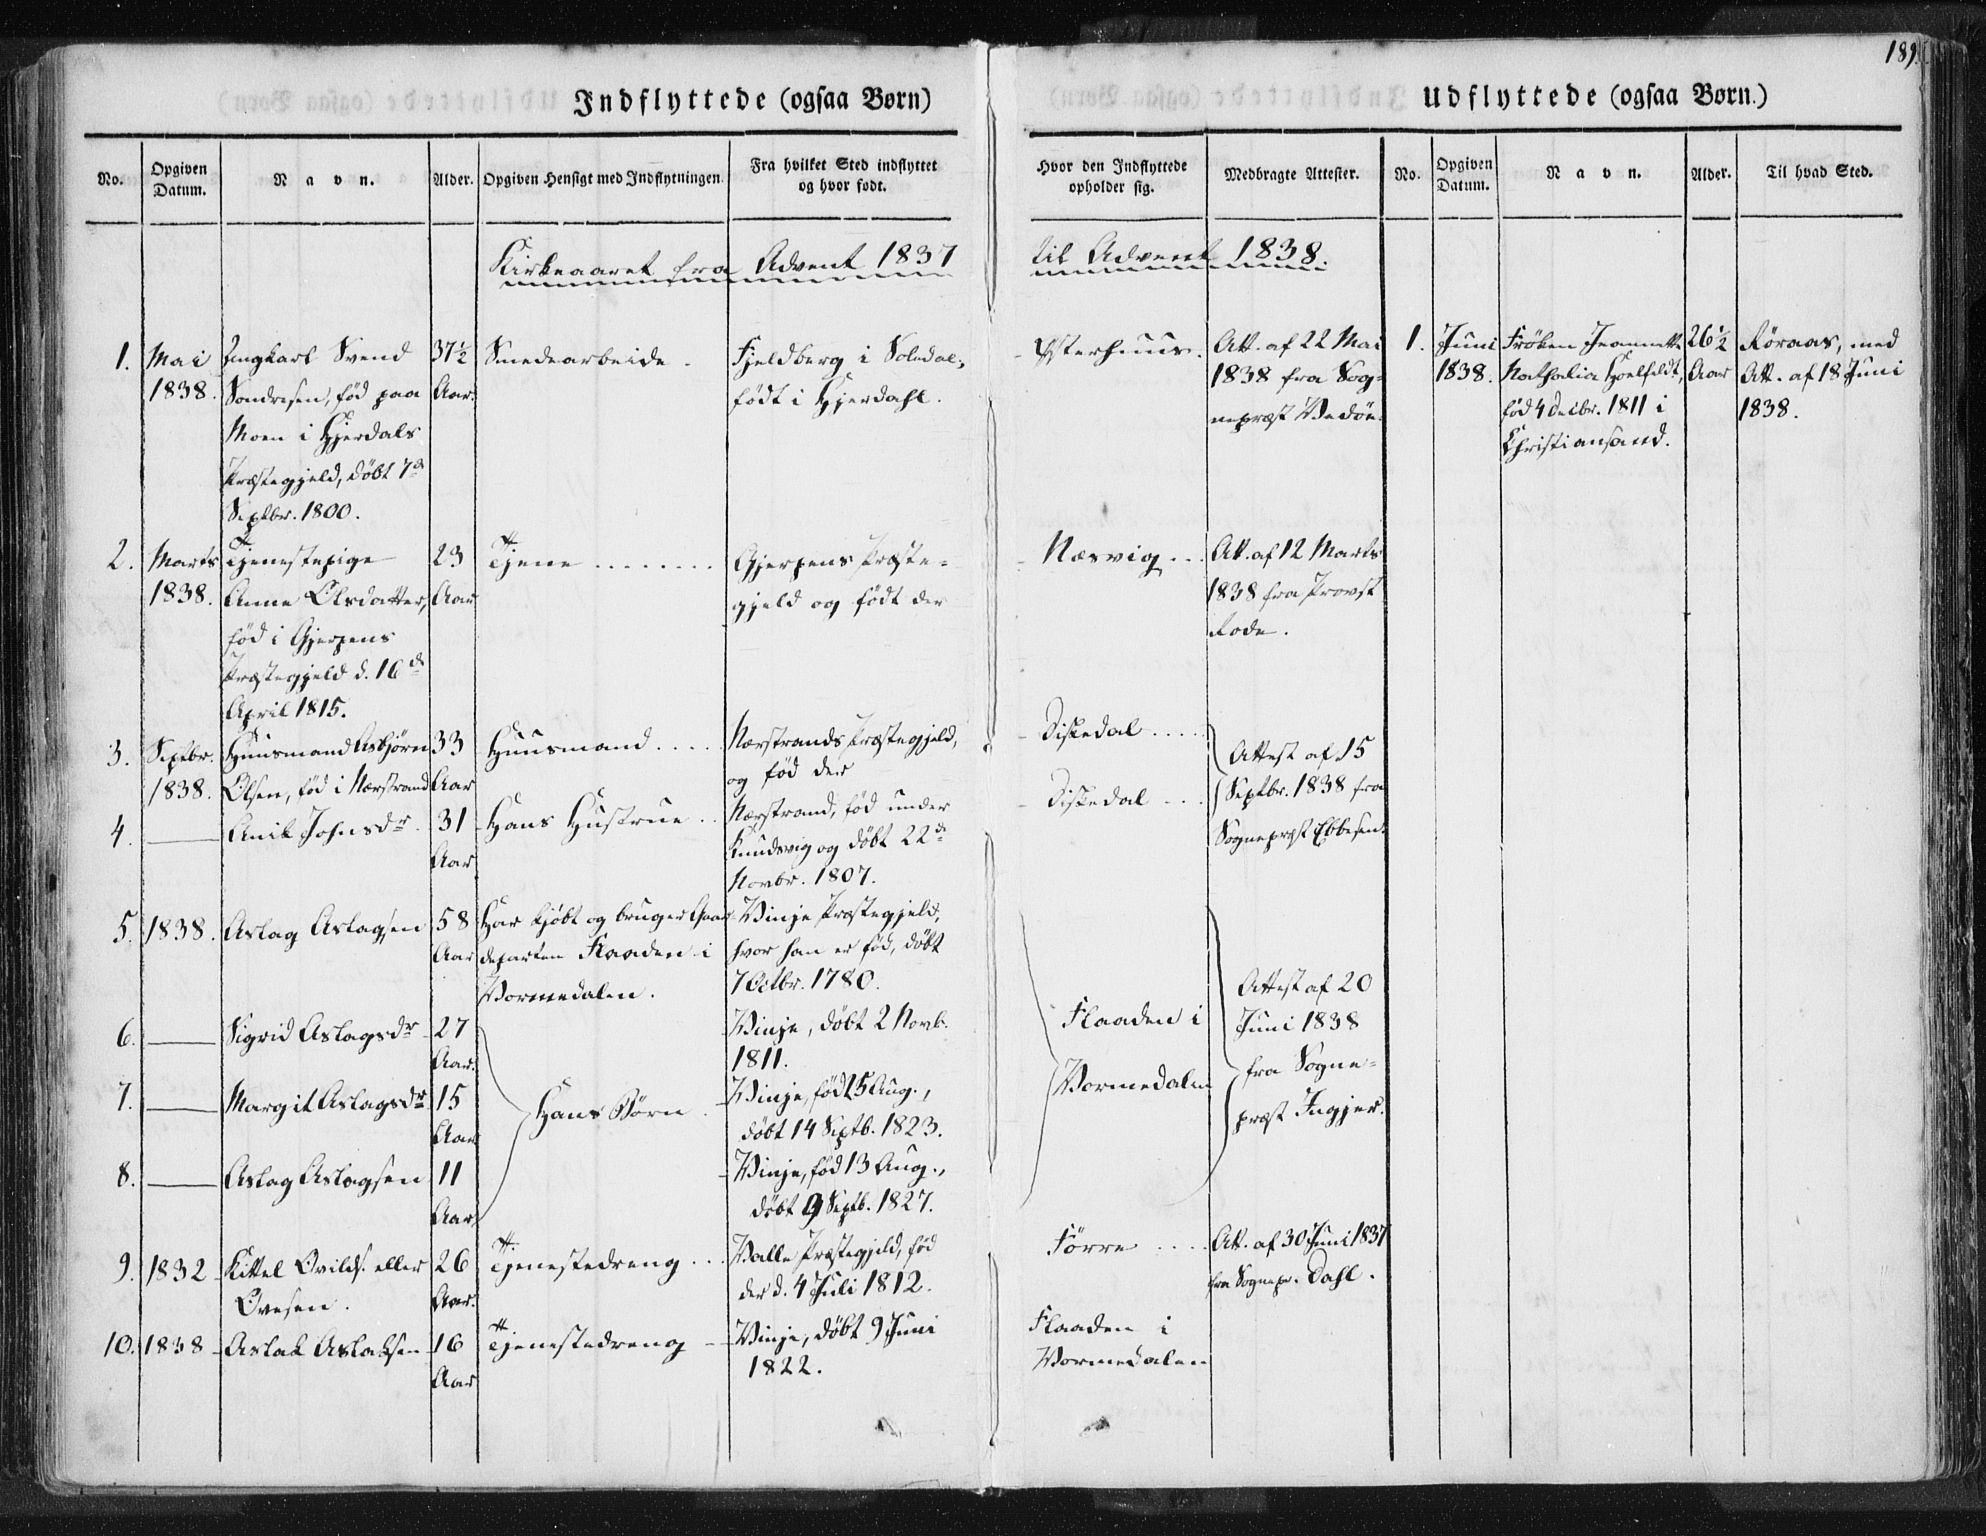 189.
Indflyttede (ogsaa Børn)
Udflyttede (ogsaa Børn.)
No.
Opgiven
Datum.
Navn.
Alder.
Opgiven Hensigt med Indflytningen.
Fra hvilket Sted indflyttet
og hvor født.
Hvor den Indflyttede
opholder sig.
Medbragte Attester.
No.
Opgiven
Datum.
Navn.
Alder.
Til hvad Sted.
Kirkeaaret fra Advent 1837
til Advent 1838.
1.
Mai
1838.
Ungkarl Svend
Sondresen, fød paa
Moen i Hjerdals
Præstegjeld, døbt 7d
Septbr. 1800.
37½
Aar.
Smedearbeide.
Fjeldberg i
født i Hjerdahl.
Østerhuus.
Att. af 22 Mai
1838 fra Sog-
nepræst
1.
Juni
1838.
Frøken Jeannette
Nathalia
fød 4 Decbr. 1811 i
Christiansand.
26½
Aar
Røraas, med
Att. af 18 Juni
1838.
2.
Marts
1838.
Tjenestepige
Anne Olsdatter,
fød i Gjerpens
Præstegjeld d. 16de
April 1815.
23
Aar
Tjene ........
Gjerpens Præste-
gjeld og født der
Næsvig ...
Att. af 12 Marts
1838 fra Provst
Rode.
3.
Septbr.
1838.
Huusmand Asbjørn
Olsen, fød i Nærstrand
33
Aar
Huusmand .....
Nærstrands Præstegjeld,
og fød der
Diskedal .....
Attest af 15
Septbr. 1838 fra
Sognepræst Ebbesen.
4.
Anik Johnsdr.
31
Aar
Hans Hustrue ..
Nærstrand, fød under
Knudsvig og døbt 22de
Novbr. 1807.
Diskedal ...
5.
1838.
Aslag Aslagsen
58
Aar
Har kjøbt og bruger Gaar-
departen Flaaden i
Vormedalen.
Vinje Præstegjeld,
hvor han er fød, døbt
7 Octbr. 1780.
Flaaden i
Vormedalen
Attest af 20
Juni 1838
fra Sogne-
præst Ingjer.
6.
Sigrid Aslagsdr
27
Aar.
Hans Børn.
Vinje, døbt 2 Novb.
1811.
7.
Margit Aslagsdr
15
Aar
Vinje, født 5 Aug.,
døbt 14 Septb. 1823.
8.
Aslag Aslagsen
11
Aar
Vinje, fød 13 Aug.,
døbt 9 Septb. 1827.
9.
1832
Kittel Ovilds. eller
Ovesen.
26
Aar.
Tjenestedreng ...
Valle Præstegjeld, fød
der d. 4 Juli 1812.
Førre ....
Att. af 30 Juni 1837
fra Sognepr. Dahl.
10.
1838
Aslak Aslaksen
16
Aar
Tjenestedreng
Vinje, døbt 9 Juni
1822.
Flaaden i
Vormedalen